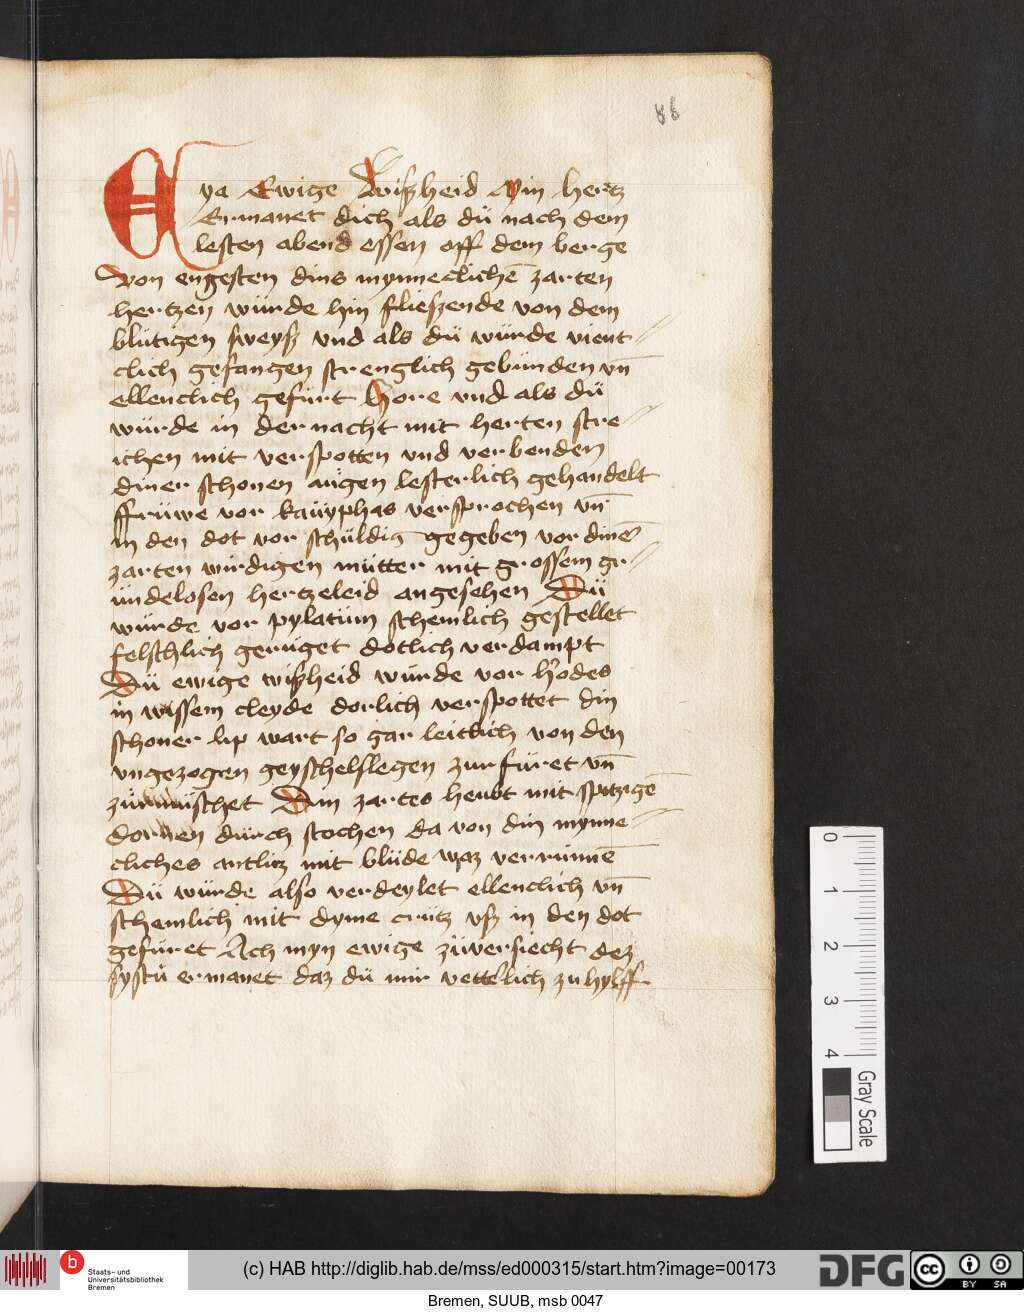 86
Eya Ewige Wißheid Min hertz
Ermanet dich als dü nach dem
lesten abend essen off dem berge
von engesten dins mynneclichē zarten
hertzen würde hin fließende von dem
blütigen sweyß vnd als dü würde vient-
clich gefangen strenglich gebünden vn̄
ellenclich gefürt Hore vnd als dü
würde in der nacht mit herten stre-
ichen mit verspotten vnd verbenden
diner schonen aügen lesterlich gehandelt
ffrüwe vor kaüyphas versprochen vn̄
in den dot vor schüldig gegeben vor dinē
zarten wirdigen mütter mit grossem gr-
ündelosen hertzeleid angesehen Dü
würde vor pylatüm schemlich gestellet
felschlich gerüget dotlich verdampt
Dü ewige wißheid würde vor h'odes
in wissem cleyde dorlich verspottet din
schoner lip wart so gar leitlich von den
vngezogen geyschelslegen zurfüret vn̄
zürmüschet Din zartes heubt mit spitzigē
dornen dürch stochen da von din mynne-
cliches antlicz mit blüde waz verrunnē
Dü würde also verdeylet ellenclich vn̄
schemlich mit dyme crütz vß in den dot
gefüret Ach myn ewige züversiecht dez
systü ermanet daz dü mir vett'lich zu hylff
0
1
2
3
4
Gray Scale
b
Staats- und
Universitätsbibliothek
Bremen
(c) HAB http://diglib.hab.de/mss/ed000315/start.htm?image=00173
DFG
cc
BY SA
Bremen, SUUB, msb 0047